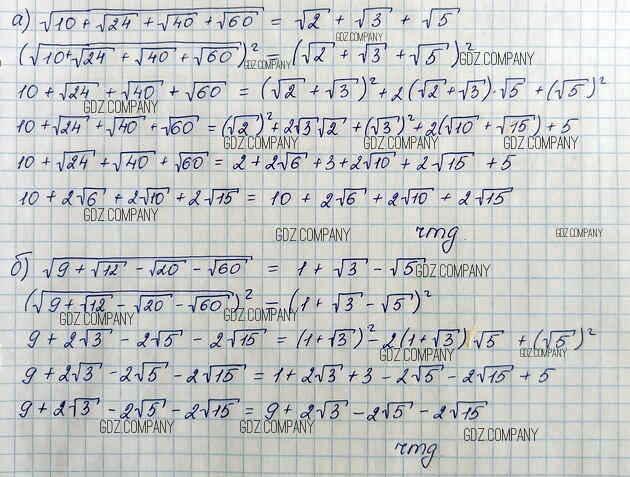 а) √(10 + √24 + √40 + √60) = √2 + √3 + √5
GDZ.COMPANY
(√(10+√24 + √40 + √60))² = (√2 + √3 + √5)²
GDZ.COMPANY GDZ.COMPANY
10 + √24 + √40 + √60 = (√2 + √3)² + 2(√2 + √3)·√5 + (√5)²
GDZ.COMPANY
10 + √24 + √40 + √60 = (√2)² + 2√3√2 + (√3)² + 2(√10 + √15) + 5
GDZ.COMPANY GDZ.COMPANY GDZ.COMPANY
10 + √24 + √40 + √60 = 2 + 2√6 + 3 + 2√10 + 2√15 + 5
10 + 2√6 + 2√10 + 2√15 = 10 + 2√6 + 2√10 + 2√15
GDZ.COMPANY
GDZ.COMPANY чтд. GDZ.COMPANY
б) √(9 + √12 - √20 - √60) = 1 + √3 - √5
GDZ.COMPANY
(√(9 + √12 - √20 - √60))² = (1 + √3 - √5)²
GDZ.COMPANY GDZ.COMPANY
9 + 2√3 - 2√5 - 2√15 = (1 + √3)² - 2(1 + √3)√5 + (√5)²
GDZ.COMPANY GDZ.COMPANY
9 + 2√3 - 2√5 - 2√15 = 1 + 2√3 + 3 - 2√5 - 2√15 + 5
9 + 2√3 - 2√5 - 2√15 = 9 + 2√3 - 2√5 - 2√15
GDZ.COMPANY GDZ.COMPANY GDZ.COMPANY
чтд